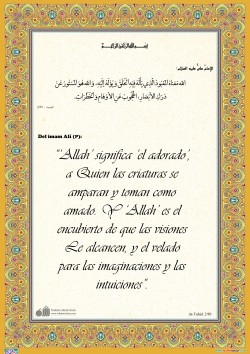 الإمام علي عليه السلام:
الله معناه المعبود الذي يأله فيه الخلق ويؤله إليه، والله هو المستور عن
درك الأبصار، المحجوب عن الأوهام والخطرات
Del imam Ali (P):
“‘Allah’ significa ‘el adorado’,
a Quien las criaturas se
amparan y toman como
amado. Y ‘Allah’ es el
encubierto de que las visiones
Le alcancen, y el velado
para las imaginaciones y las
intuiciones”.
At-Tuhid, 2/89